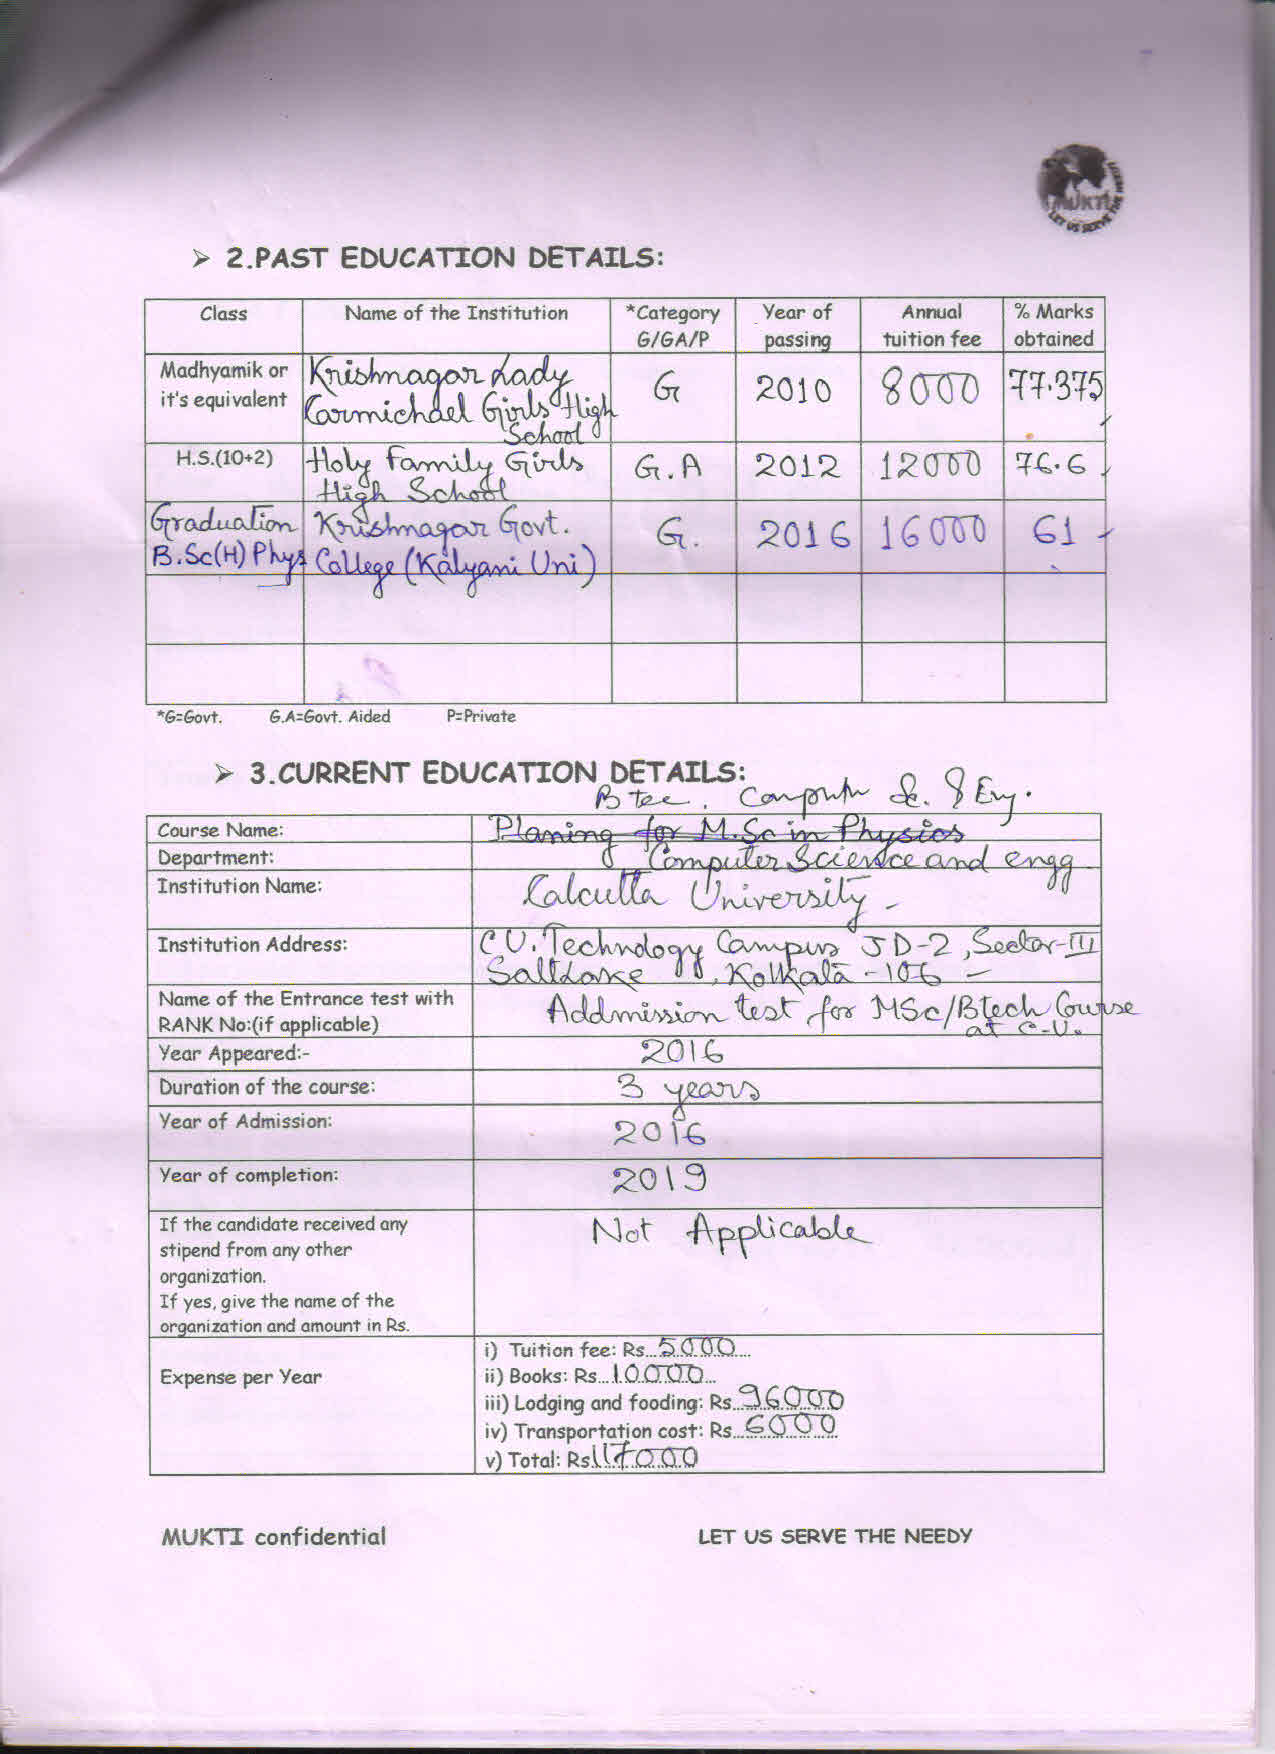 MUKTI
LET US SERVE THE
➢ 2.PAST EDUCATION DETAILS:
Class Name of the Institution *Category G/GA/P Year of passing Annual tuition fee % Marks obtained
Madhyamik or it's equivalent Krishnagar Lady Carmichael Girls High School G 2010 8000 77.375
H.S.(10+2) Holy Family Girls High School G.A 2012 12000 76.6
Graduation B.Sc(H) Phys Krishnagar Govt. College (Kalyani Uni) G. 2016 16000 61
*G=Govt. G.A=Govt. Aided P=Private
➢ 3.CURRENT EDUCATION DETAILS:
B Tec. Computer Sc. & Eng.
Course Name: Planing for M.Sc in Physics
Department: Computer Science and engg
Institution Name: Calcutta University -
Institution Address: C U. Technology Campus JD-2, Sector-III
SaltLake, Kolkata -106 -
Name of the Entrance test with Addmission test for MSc/Btech Course
RANK No:(if applicable) at C.U.
Year Appeared:- 2016
Duration of the course: 3 years
Year of Admission: 2016
Year of completion: 2019
If the candidate received any Not Applicable
stipend from any other
organization.
If yes, give the name of the
organization and amount in Rs.
Expense per Year
i) Tuition fee: Rs...5000...
ii) Books: Rs...10000...
iii) Lodging and fooding: Rs..96000
iv) Transportation cost: Rs..6000
v) Total: Rs 117000
MUKTI confidential LET US SERVE THE NEEDY